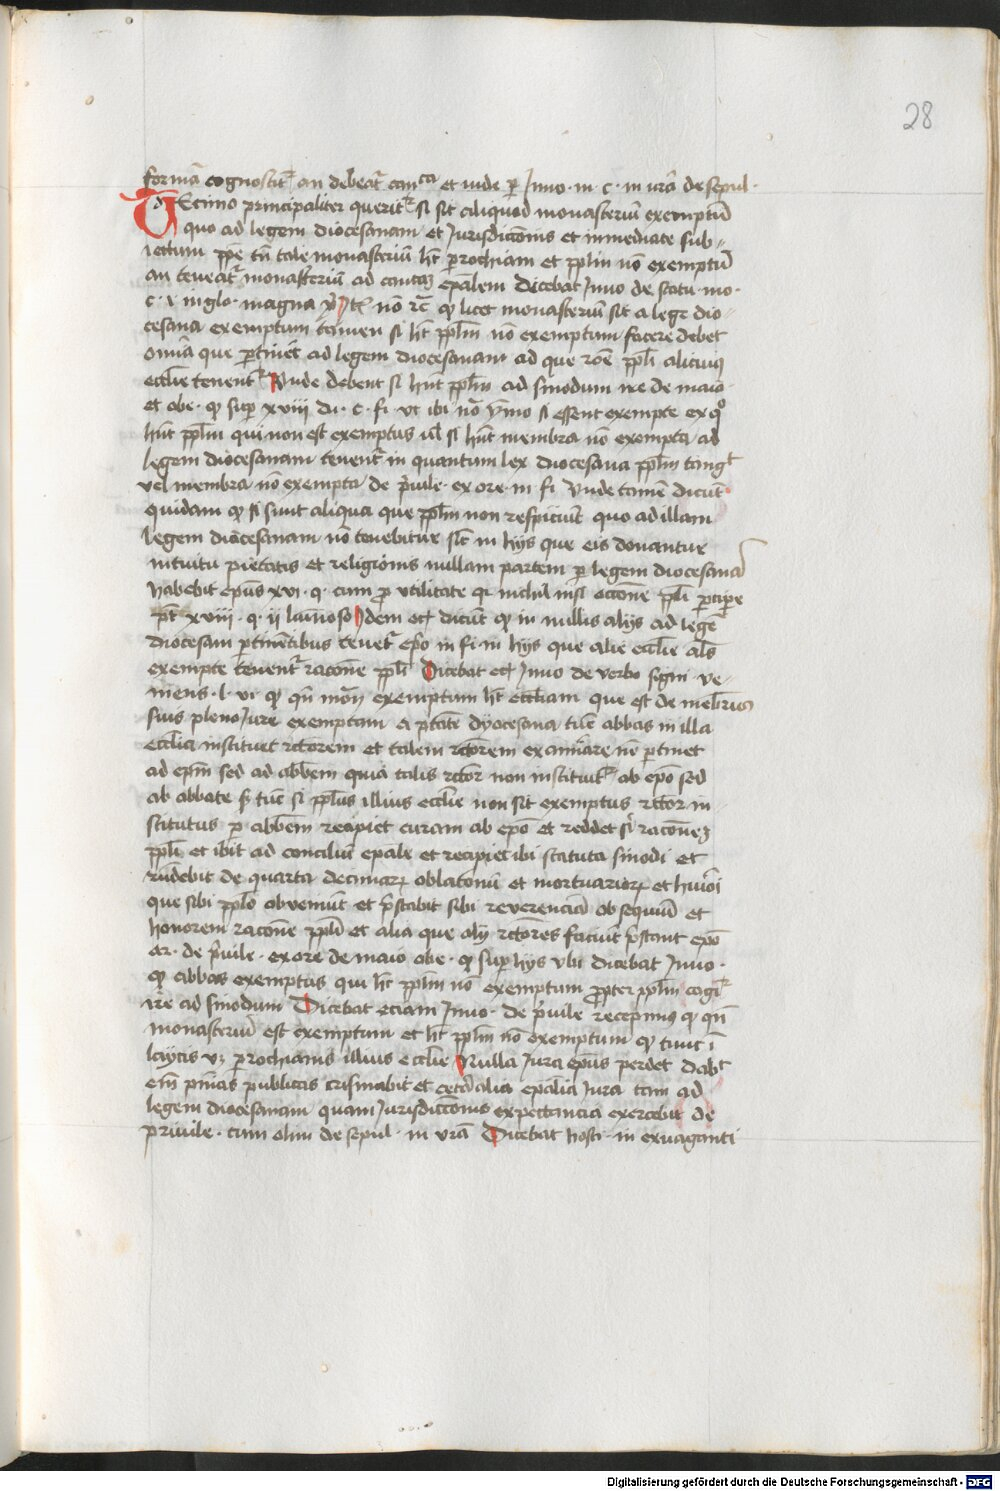 28
formā cognoscit͛ an debeat͛ canᶜᵃ et vide ꝑ Inno · in · c · in vr̄a de sepul ·
DEcimo principaliter querit͛ si sit aliquod monasteriū exemptū
quo ad legem diocesanam et Jurisdicc̄onis et inmediate sub-
iectum pp̄e tn̄ tale monasteriū hr̄ ꝑrochiam et pplm̄ nō exemptū
an teneat͛ monasteriū ad epālem Dicebat Inno de statu · mo ·
c · in glo · magna nō qꝫ licet monasteriū sit a lege dio-
cesana exemptum tamen si hr̄ pplm̄ nō exemptum facere debet
omīa que ꝑtinēt ad legem diocesanam ad que rōe ppli alicuiꝰ
eccl̄ie tenent͛ Vnde debent si hn̄t pplm̄ ad sinodum ire de maio ·
et obe · qꝫ suꝑ xviii di · c · fi · vt ibi nō ymo si essent exempte ex qͦ
hn̄t pplm̄ qui non est exemptus ul̄ si hn̄t membra nō exempta ad
legem diocesanam tenent͛ in quantum lex diocesana pplm̄ tangt͛
vel membra nō exempta de p̄uile · ex ore · in fi Vnde tamē dicūt
quidam qꝫ si sunt aliqua que pplm̄ non respiciūt quo ad illam
legem diocesanam nō tenebitur sic̄ in hijs que eis donantur
intuitu pietatis et religionis nullam partem ꝑ legem diocesanā
habebit ep̄us xvi · q · cum ꝓ vtilitate qr nichil nisi occ̄one ppli ꝑcipe
pt̄ xviii · q · ii luminoso Idem ec̄ dicūt qꝫ in nullis alijs ad legē
diocesam ꝑtinētibus tenet͛ ep̄o in fi in hijs que alie eccl̄ie al̄s
exempte tenent͛ racōne ppli Dicebat ec̄ Inno de verbo signi ve-
niens · l · vi · qꝫ qn̄ mon̄ exemptum hr̄ eccl̄iam que est de mēbris
suis pleno Jure exemptam a ptāte dyocesana tūc abbas in illa
eccl̄ia instituet rc̄torem et talem rc̄torem examīare nō ꝑtinet
ad ep̄m sed ad abbēm quia talis rc̄tor non instituit͛ ab ep̄o sed
ab abbate sꝫ tūc si ppl̄us illius eccl̄ie non sit exemptus rc̄tor in-
stitutus ꝑ abbēm recipiet curam ab ep̄o et reddet si racōneꝫ
ppli et ibit ad conciliū epāle et recipiet ibi statuta sinodi et
rn̄debit de quarta decimarꝝ oblatōnū et mortuariorꝝ et hmōi
que sibi pplo obveniūt et p̄stabit sibi reverenciā obsequiū et
honorem racōne ppli et alia que alij rc̄tores faciūt p̄stant ep̄o
ar · de p̄uile · ex ore de maio obe · qꝫ suꝑ hijs vbi dicebat Inno ·
qꝫ abbas exemptus qui hr̄ pplm̄ nō exemptum ꝓpter pplm̄ cogit͛
ire ad sinodum Dicebat eciam Inno · de p̄uile recepimꝰ qꝫ qn̄
monasteriū est exemptum et hr̄ pplm̄ nō exemptum qꝫ tūc ī
laycis vꝫ ꝑrochianis illius eccl̄ie Nulla Jura ep̄us perdet Dabt͛
em̄ pn̄ias publicas crismabit et cetā alia epālia Jura tam ad
legem diocesanam quam Jurisdicc̄onis expectancia exercebit de
priuile · cum olim de sepul · in vr̄a Dicebat hosti · in exuaganti
Digitalisierung gefördert durch die Deutsche Forschungsgemeinschaft - DFG